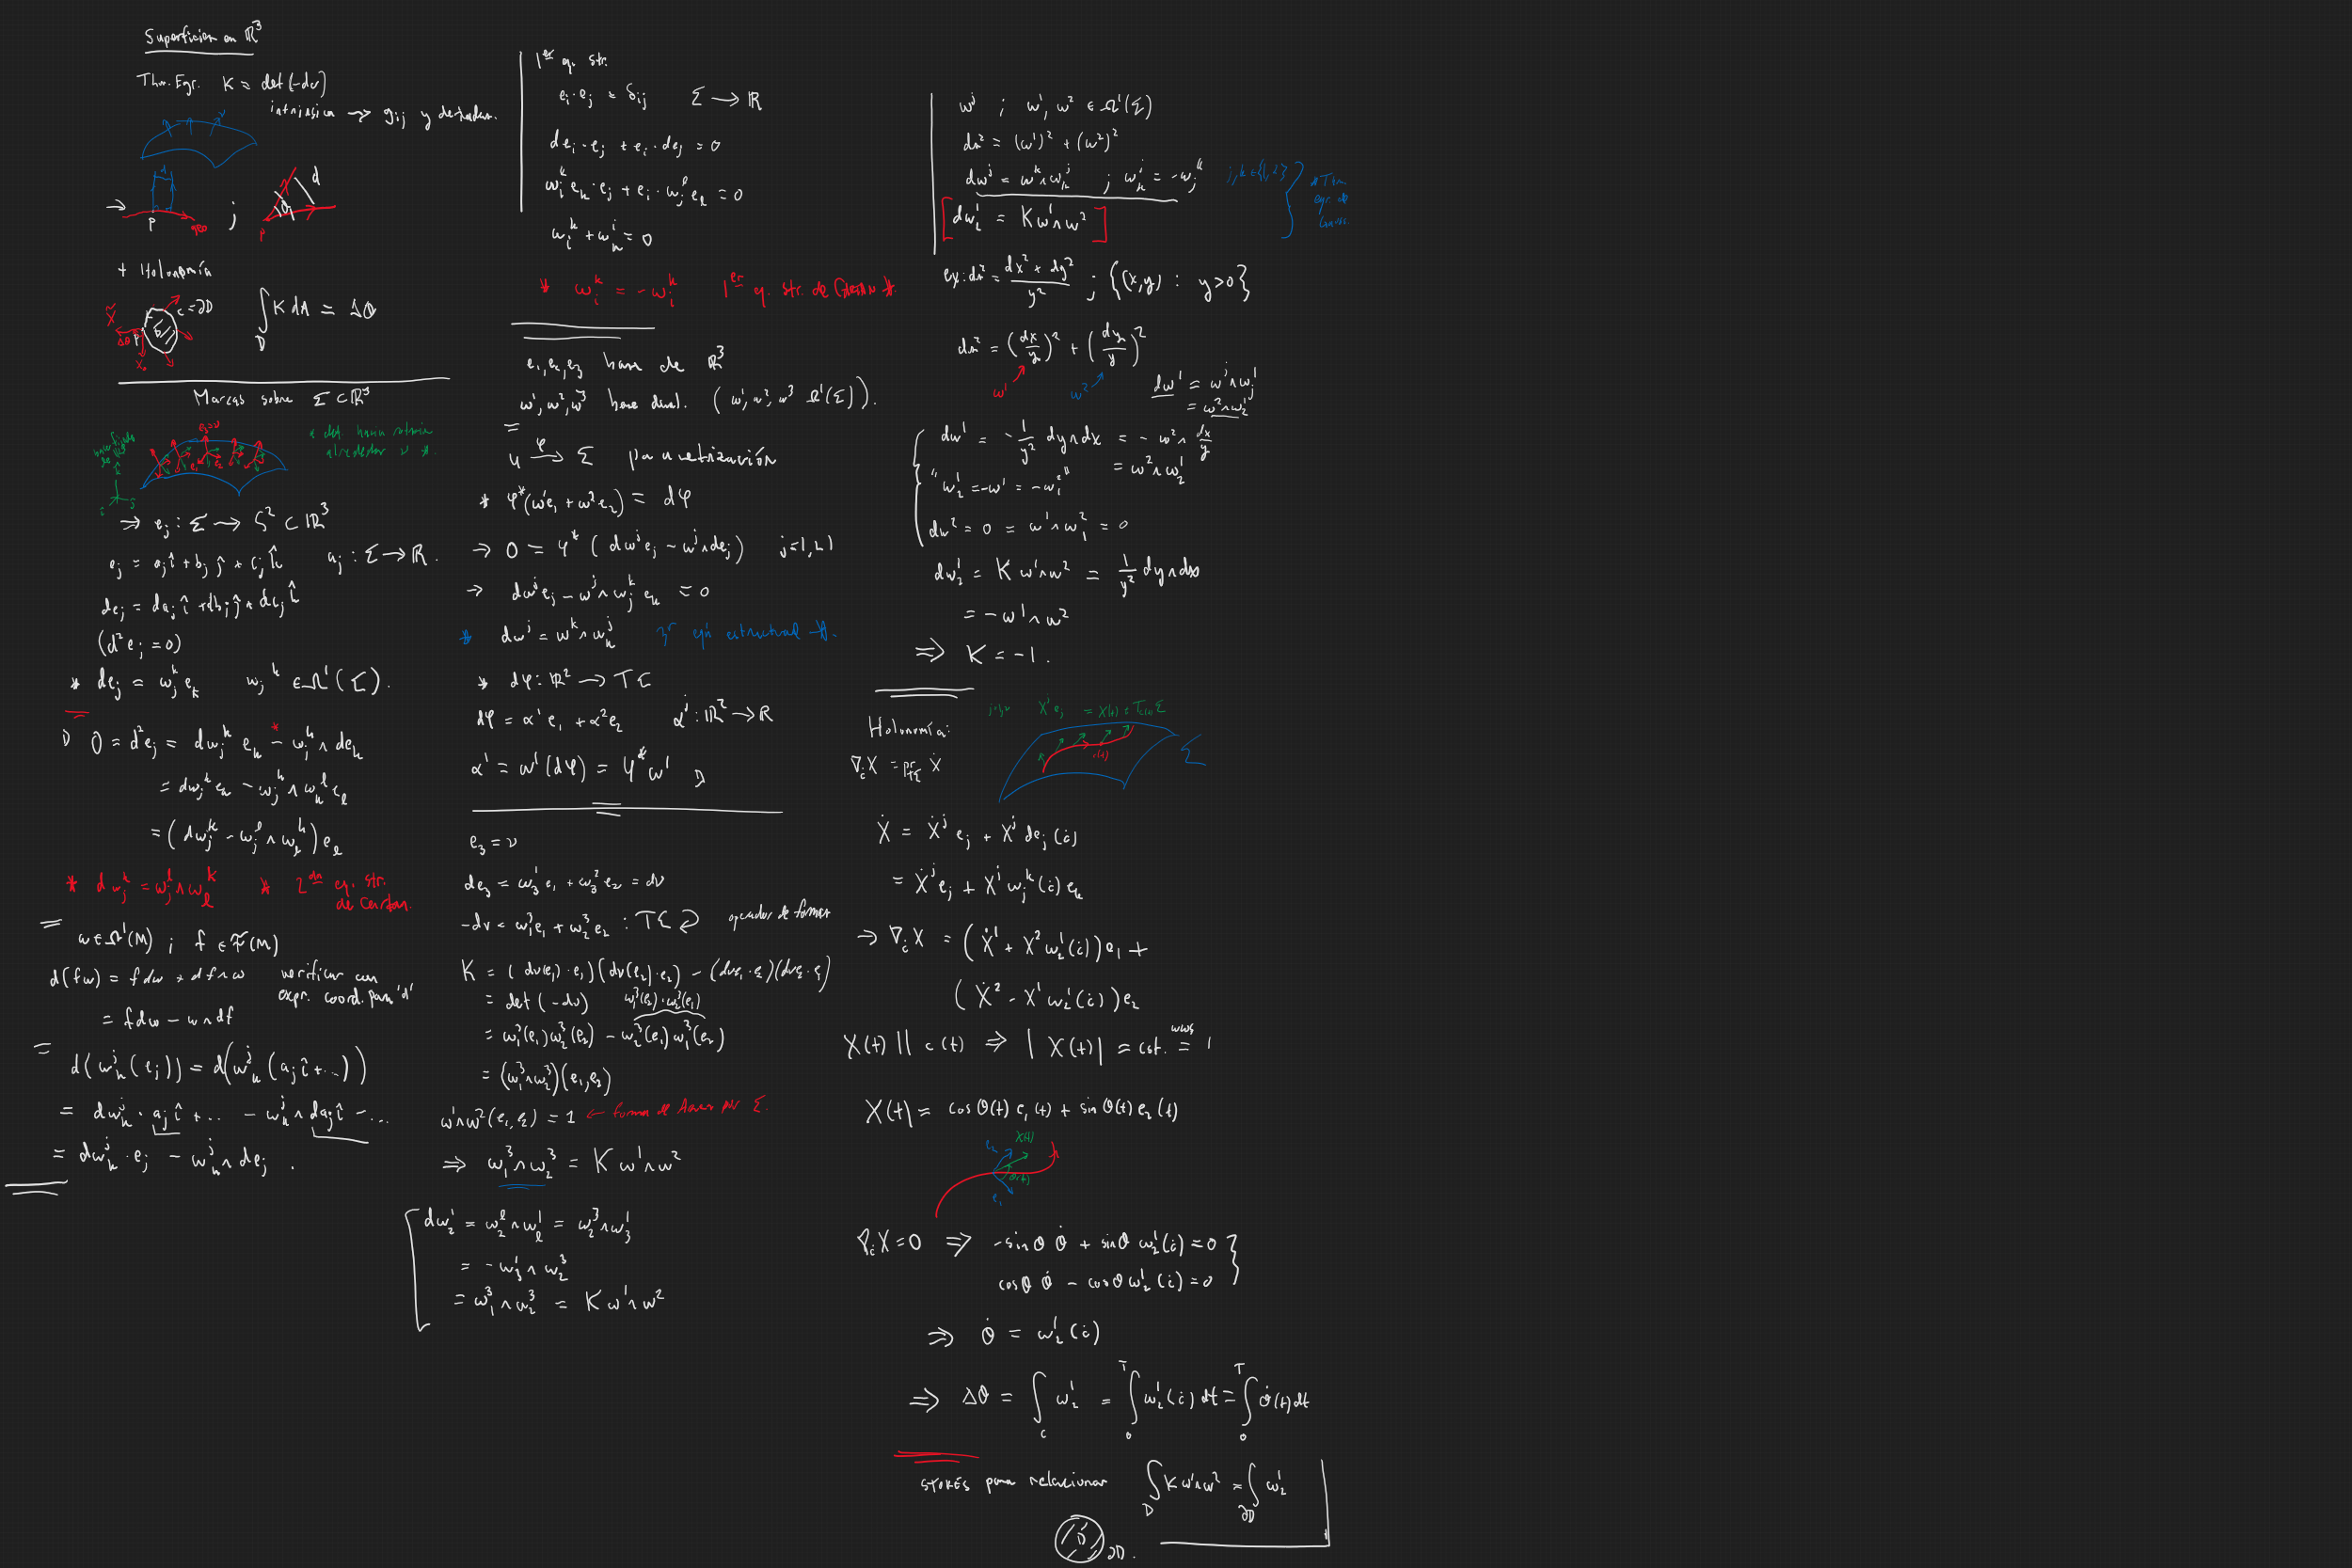 Superficies en ℝ³
Thm. Egr. K = det(-dν)
intrínsica → g_ij y derivadas.
ν
p
geo
;
d
p
+ Holonomía
c = ∂D
D
p
X₀
Δθ
∫_D K dA = Δθ
Marcos sobre Σ ⊂ ℝ³
e₃ = ν
e₁
e₂
alrededor ν *.
⇒ e_j : Σ → S² ⊂ ℝ³
e_j = a_j î + b_j ĵ + c_j k̂ a_j : Σ → ℝ.
de_j = da_j î + db_j ĵ + dc_j k̂
(d²e_j = 0)
* de_j = ω_j^k e_k ω_j^k ∈ Ω¹(Σ).
D 0 = d²e_j = dω_j^k e_k - ω_j^k ∧ de_k
= dω_j^k e_k - ω_j^k ∧ ω_k^l e_l
= (dω_j^k - ω_j^l ∧ ω_l^k) e_l
* dω_j^k = ω_j^l ∧ ω_l^k * 2da eq. str.
de Cartan.
ω ∈ Ω¹(M) ; f ∈ F(M)
d(fω) = f dω + df ∧ ω verificar con
expr. coord. para 'd'
= f dω - ω ∧ df
d(ω_k^j (e_j)) = d(ω_k^j (a_j î + ...))
= dω_k^j · a_j î + ... - ω_k^j ∧ da_j î - ...
= dω_k^j · e_j - ω_k^j ∧ de_j .
1er eq. str.
e_i · e_j = δ_ij Σ → ℝ
de_i · e_j + e_i · de_j = 0
ω_i^k e_k · e_j + e_i · ω_j^l e_l = 0
ω_i^k + ω_k^i = 0
* ω_i^k = -ω_i^k 1er eq. str. de Cartan *.
e₁, e₂, e₃ base de ℝ³
ω¹, ω², ω³ base dual. (ω¹, ω², ω³ Ω¹(Σ)).
U →φ Σ parametrización
* φ*(ω¹e₁ + ω²e₂) = dφ
→ 0 = φ*(dω^j e_j - ω^j ∧ de_j) j=1,2
→ dω^j e_j - ω^j ∧ ω_j^k e_k = 0
* dω^j = ω^k ∧ ω_k^j 3r eqn estructural *.
* dφ : ℝ² → TΣ
dφ = α¹e₁ + α²e₂ α^j : ℝ² → ℝ
α¹ = ω¹(dφ) = φ*ω¹ D
e₃ = ν
de₃ = ω₃¹e₁ + ω₃²e₂ = dν
-dν = ω₁³e₁ + ω₂³e₂ : TΣ ↩ operador de forma
K = (dν(e₁)·e₁)(dν(e₂)·e₂) - (dνe₁·e₂)(dνe₂·e₁)
= det(-dν) ω₁³(e₂)·ω₂³(e₁)
= ω₁³(e₁)ω₂³(e₂) - ω₂³(e₁)ω₁³(e₂)
= (ω₁³∧ω₂³)(e₁,e₂)
ω¹∧ω²(e₁,e₂) = 1 ← forma de Area por Σ.
⇒ ω₁³∧ω₂³ = K ω¹∧ω²
dω₂¹ = ω₂^l ∧ ω_l¹ = ω₂³∧ω₃¹
= -ω₃¹∧ω₂³
= ω₁³∧ω₂³ = K ω¹∧ω²
ω^j ; ω¹, ω² ∈ Ω¹(Σ)
ds² = (ω¹)² + (ω²)²
dω^j = ω^k∧ω_k^j ; ω_k^j = -ω_j^k j,k ∈ {1,2}
[dω₂¹ = K ω¹∧ω²]
* Thm
egr. de
Gauss.
ex: ds² = (dx² + dy²)/y² ; {(x,y) : y>0}
ds² = (dx/y)² + (dy/y)²
ω¹ ω²
dω¹ = ω^j∧ω_j¹
= ω²∧ω₂¹
dω¹ = -1/y² dy∧dx = -ω²∧dx/y
= ω²∧ω₂¹
"ω₂¹ = -ω¹ = -ω₁²"
dω² = 0 = ω¹∧ω₁² = 0
dω₂¹ = K ω¹∧ω² = 1/y² dy∧dx
= -ω¹∧ω²
⇒ K = -1.
Holonomía:
X^j e_j = X(t) ∈ T_c(t)Σ
c(t)
Σ
∇_ċ X = pr_TΣ Ẋ
Ẋ = Ẋ^j e_j + X^j de_j(ċ)
= Ẋ^j e_j + X^j ω_j^k(ċ) e_k
⇒ ∇_ċ X = (Ẋ¹ + X² ω₂¹(ċ)) e₁ +
(Ẋ² - X¹ ω₂¹(ċ)) e₂
X(t) || c(t) ⇒ |X(t)| = cst. = 1
X(t) = cosθ(t) e₁(t) + sinθ(t) e₂(t)
e₂
X(t)
θ(t)
e₁
∇_ċ X = 0 ⇒ -sinθ θ̇ + sinθ ω₂¹(ċ) = 0
cosθ θ̇ - cosθ ω₂¹(ċ) = 0
⇒ θ̇ = ω₂¹(ċ)
⇒ Δθ = ∫_c ω₂¹ = ∫₀^T ω₂¹(ċ) dt = ∫₀^T θ̇(t) dt
STOKES para relacionar ∫_D K ω¹∧ω² = ∫_∂D ω₂¹
D
∂D.